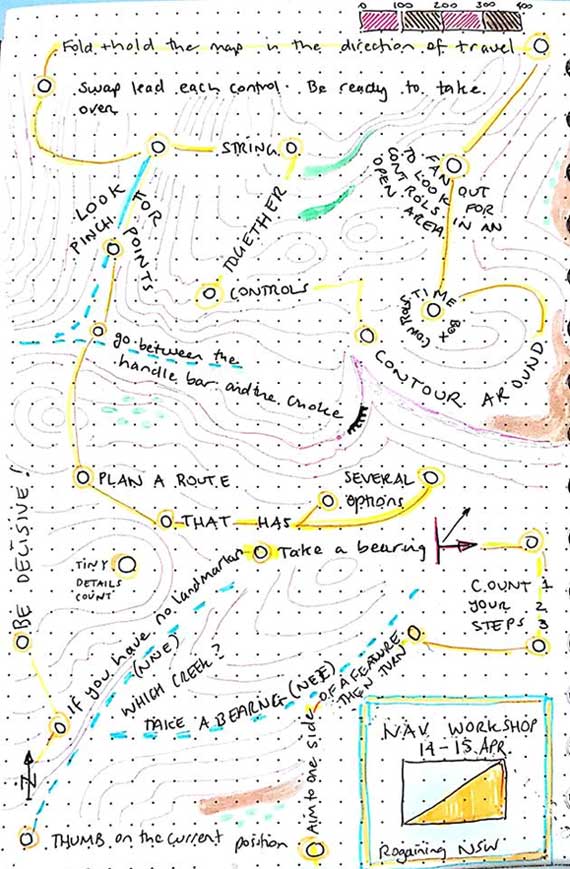 0 100 200 300 400
Fold + hold the map in the direction of travel
Swap lead each control. Be ready to take
over
STRING
TOGETHER
CONTROLS
FAN OUT
TO LOOK FOR
CONTROLS IN AN
OPEN AREA
LOOK FOR
PINCH POINTS
TIME
BOX
CONTROLS
CONTOUR AROUND
go between the
handle bar and the choke
PLAN A ROUTE
THAT HAS
SEVERAL
options
BE DECISIVE!
TINY
DETAILS
COUNT
If you have no landmarks
Take a bearing
COUNT 1
YOUR 2
STEPS 3
(NNE)
WHICH CREEK?
TAKE A BEARING (NEE)
Aim to one side
OF A FEATURE
THEN TURN
N
THUMB on the current position
NAV WORKSHOP
14-15 APR.
Rogaining NSW